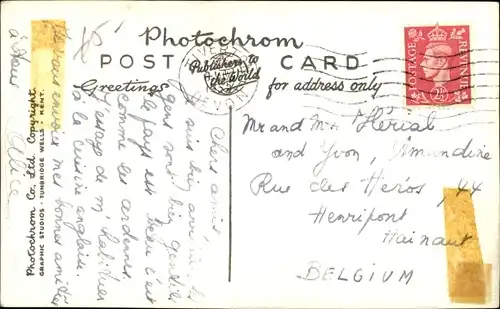 Photochrom
POST CARD
Publishers to
the World
Greetings
for address only
POSTAGE REVENUE
2½
DEVON
Photochrom Co. Ltd. Copyright.
GRAPHIC STUDIOS - TUNBRIDGE WELLS - KENT.
Chers amis,
Je suis bien arrivée. Les
gens sont bien gentils
le pays est beau c'est
comme les ardennes.
J'essaye de m'habituer
à la cuisine anglaise.
vous envoie mes bonnes amitiés
à tous
Mr and Mrs Hérial
and Yvon, Amandine
Rue des Héros, 44
Henripont
Hainaut
BELGIUM